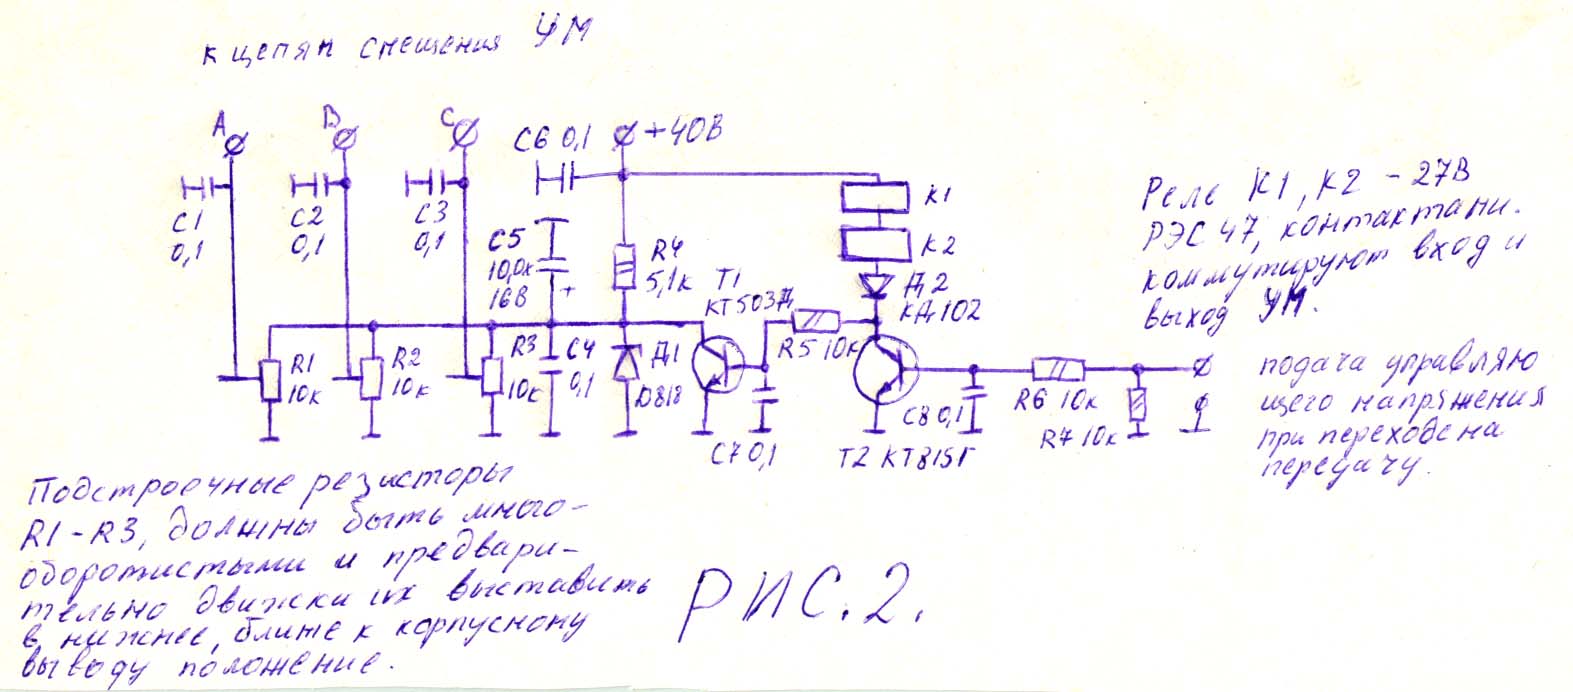 к цепям смещения УМ
А
В
С
С6 0,1
+40В
С1
0,1
С2
0,1
С3
0,1
С5
10,0к
16В
+
R4
5,1к
Т1
КТ503Д
К1
К2
Д2
КД102
R1
10к
R2
10к
R3
10к
С4
0,1
Д1
D818
R5 10к
С7 0,1
Т2 КТ815Г
С8 0,1
R6 10к
R7 10к
Реле К1, К2 - 27В
РЭС47, контактами.
коммутируют вход и
выход УМ.
подача управляю
щего напряжения
при переходе на
передачу.
Подстроечные резисторы
R1-R3, должны быть много-
оборотистыми и предвари-
тельно движки их выставить
в нижнее, ближе к корпусному
выводу положение.
РИС.2.